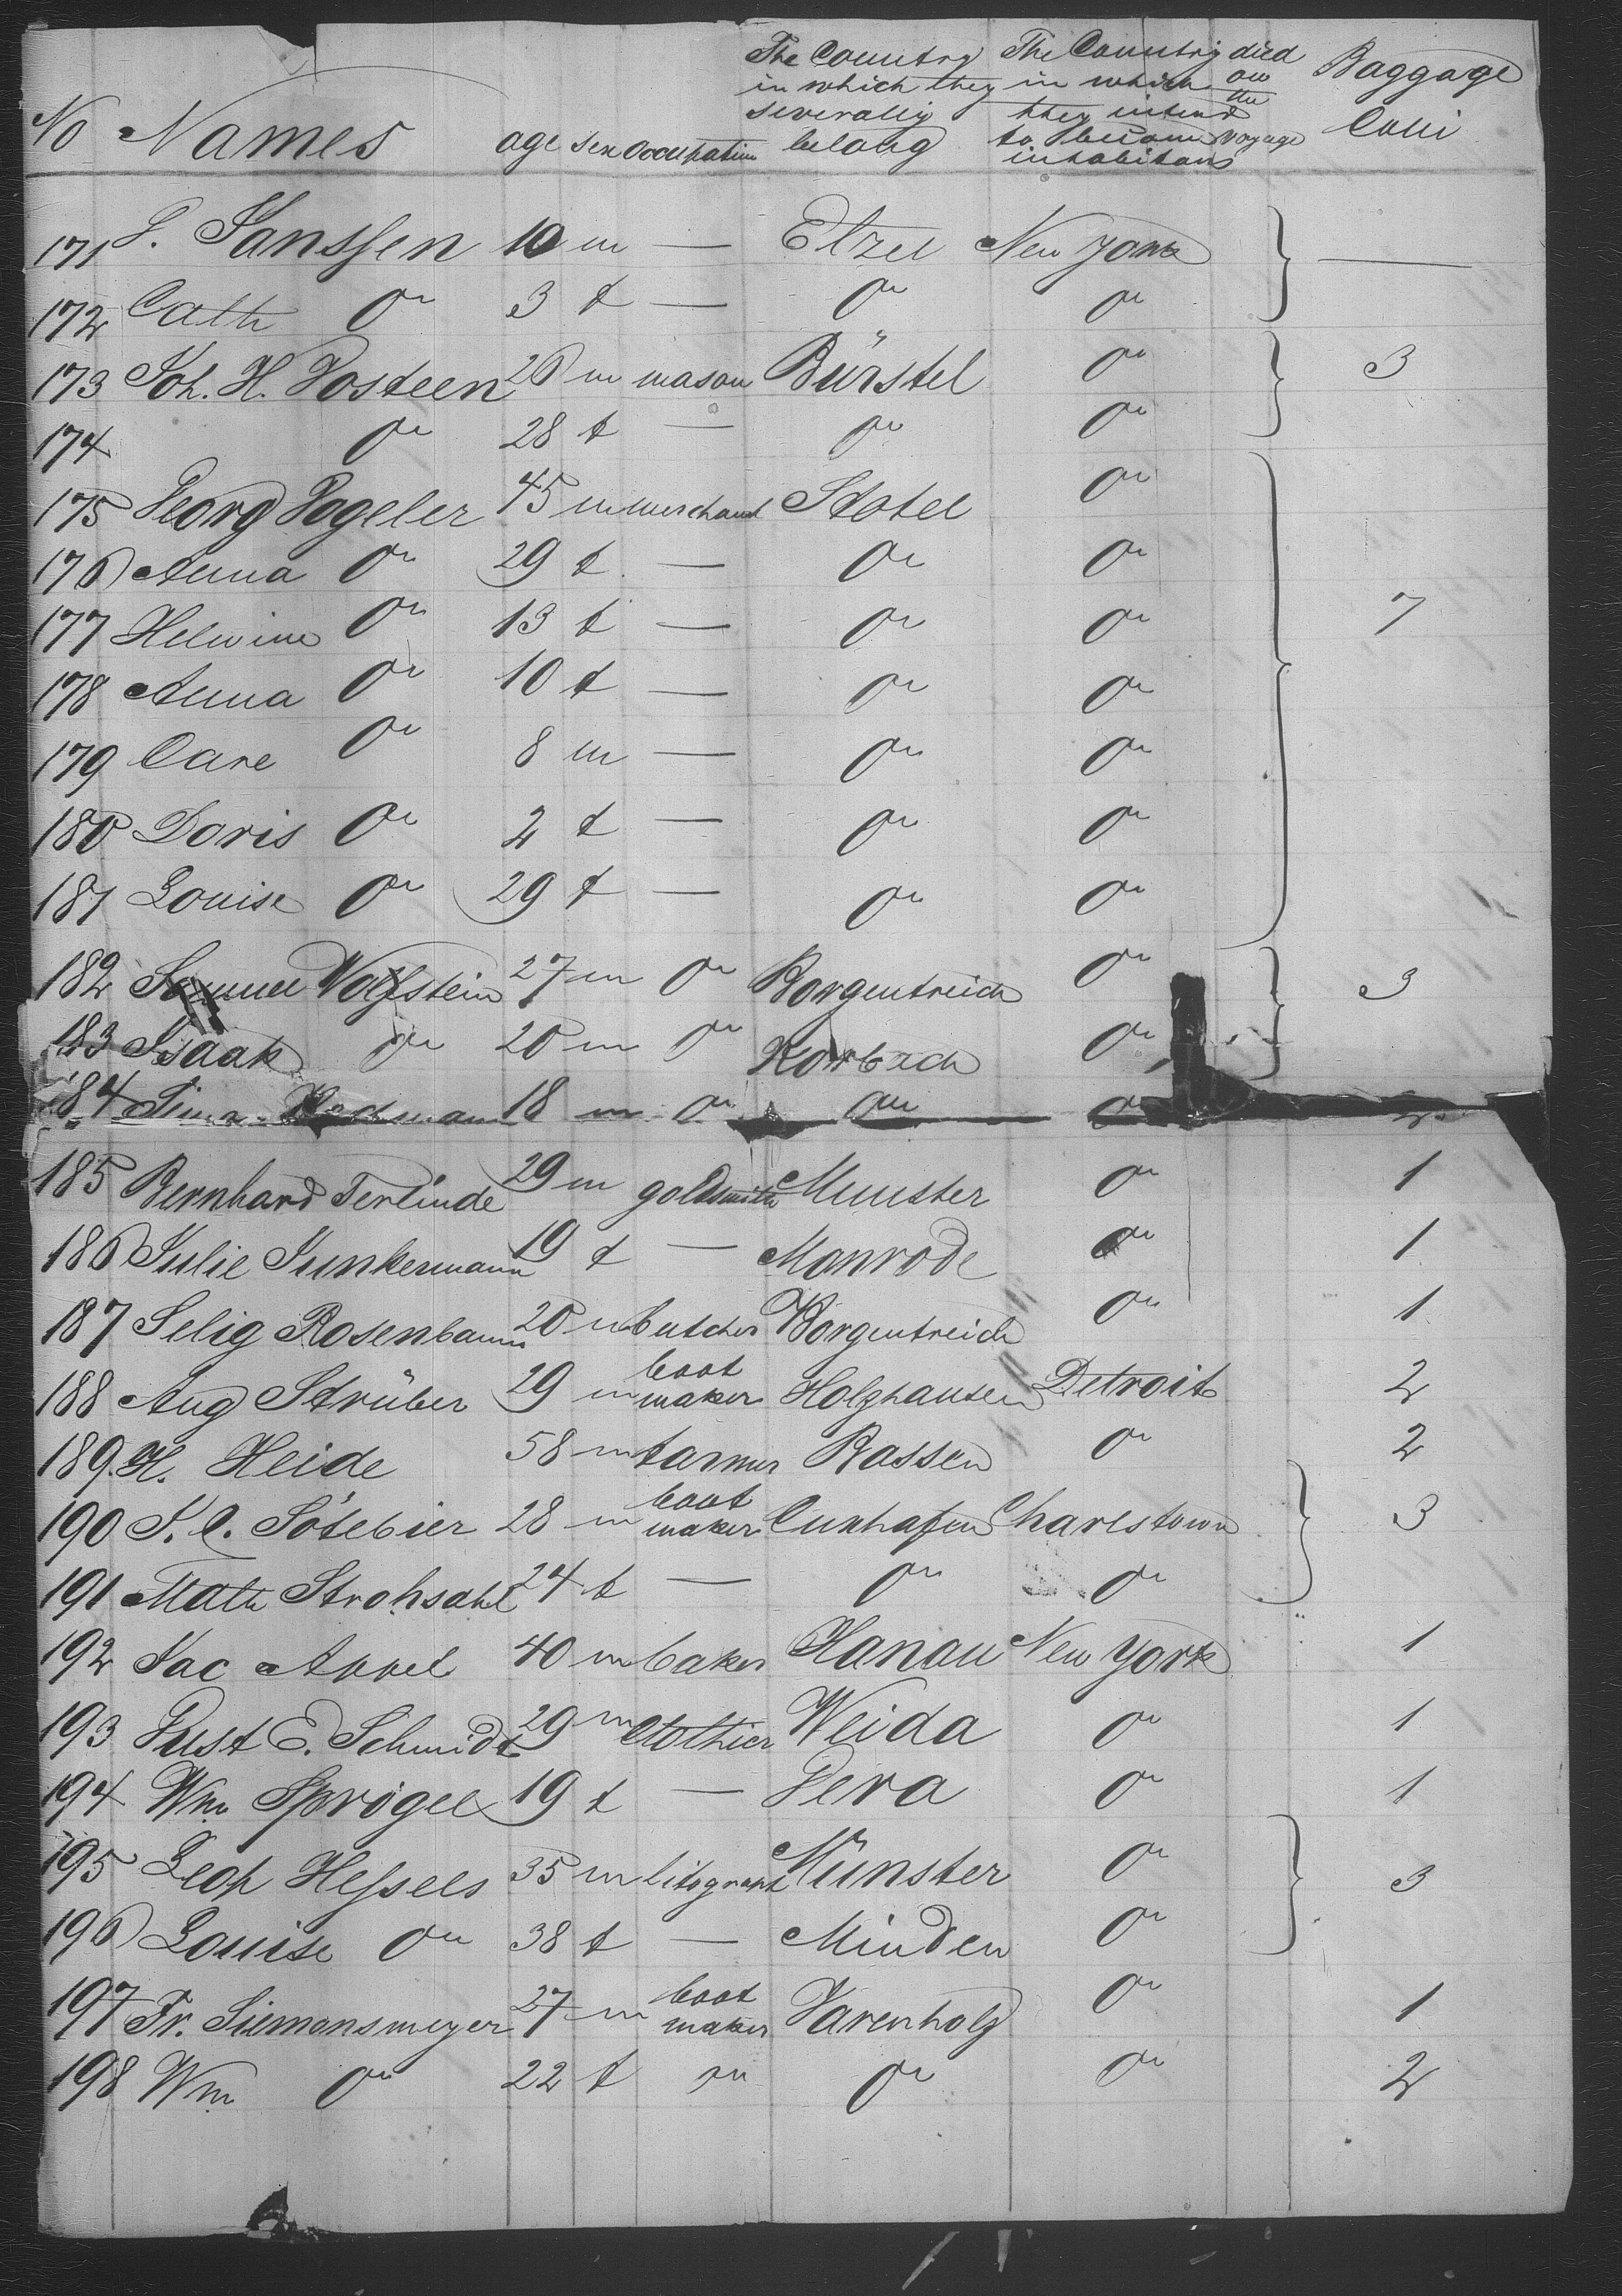 No Names age sex occupation The Country in which they severally belong The Country in which they intend to become inhabitans died on the voyage Baggage Colli
171 J. Janssen 10 m — Etzel New York —
172 Cath do 3 f — do do
173 Joh. H. Posteen 26 m mason Bürstel do 3
174 do 28 f — do do
175 Georg Vogeler 45 m merchant Stotel do
176 Anna do 29 f — do do
177 Helwine do 13 f — do do 7
178 Anna do 10 f — do do
179 Carl do 8 m — do do
180 Doris do 2 f — do do
181 Louise do 29 f — do do
182 Samuel Wolfstein 27 m do Borgentreich do 3
183 Isaak do 20 m do Korbach do
184 18 m do do do 2
185 Bernhard Terlinde 29 m goldsmith Munster do 1
186 Julie Junkermann 19 f — Manrode do 1
187 Selig Rosenbaum 20 m butcher Borgentreich do 1
188 Aug Strüber 29 m boot maker Holzhausen Detroit 2
189 H. Heide 58 m farmer Rassen do 2
190 J. C. Sötebier 28 m boot maker Cuxhafen Charlstown 3
191 Math Strohsahl 24 f — do do
192 Jac Appel 40 m baker Hanau New York 1
193 Gust E. Schmidt 29 m clothier Weida do 1
194 Wm Sprögel 19 f — Gera do 1
195 Leop Hessels 35 m litograph Münster do 3
196 Louise do 38 f — Minden do
197 Fr. Siemonsmeyer 27 m boot maker Varenholz do 1
198 Wm do 22 f do do do 2